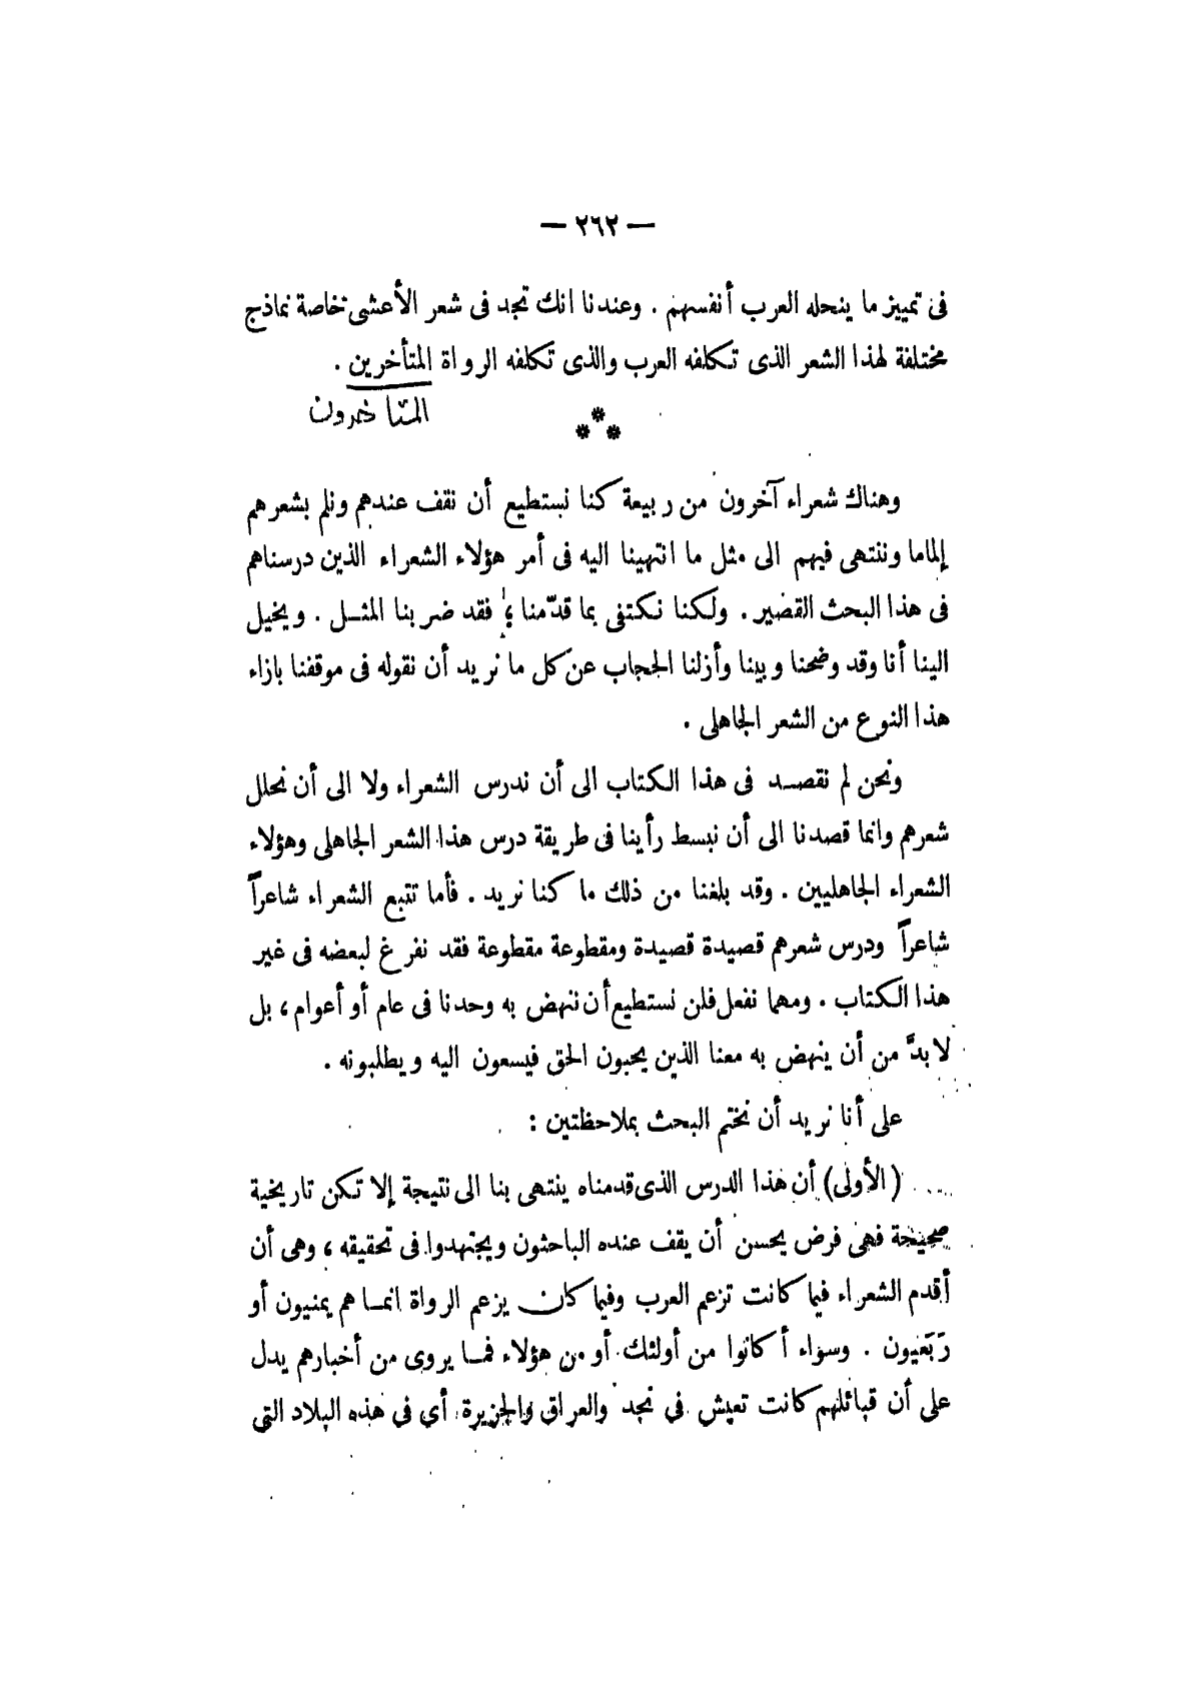 — ٢٦٢ —
فى تمييز ما ينحله العرب أنفسهم . وعندنا انك تجد فى شعر الأعشى خاصة نماذج
مختلفة لهذا الشعر الذى تكلفه العرب والذى تكلفه الرواة المتأخرين .
المتأخرون
***
وهناك شعراء آخرون من ربيعة كنا نستطيع أن نقف عندهم ونلم بشعرهم
إلماما وننتهى فيهم الى مثل ما انتهينا اليه فى أمر هؤلاء الشعراء الذين درسناهم
فى هذا البحث القصير . ولكنا نكتفى بما قدّمنا ؛ فقد ضربنا المثل . ويخيل
الينا أنا وقد وضحنا وبينا وأزلنا الحجاب عن كل ما نريد أن نقوله فى موقفنا بازاء
هذا النوع من الشعر الجاهلى .
ونحن لم نقصد فى هذا الكتاب الى أن ندرس الشعراء ولا الى أن نحلل
شعرهم وانما قصدنا الى أن نبسط رأينا فى طريقة درس هذا الشعر الجاهلى وهؤلاء
الشعراء الجاهليين . وقد بلغنا من ذلك ما كنا نريد . فأما تتبع الشعراء شاعراً
شاعراً ودرس شعرهم قصيدة قصيدة ومقطوعة مقطوعة فقد نفرغ لبعضه فى غير
هذا الكتاب . ومهما نفعل فلن نستطيع أن ننهض به وحدنا فى عام أو أعوام ، بل
لا بدّ من أن ينهض به معنا الذين يحبون الحق فيسعون اليه ويطلبونه .
على أنا نريد أن نختم البحث بملاحظتين :
( الأولى ) أن هذا الدرس الذى قدمناه ينتهى بنا الى نتيجة إلا تكن تاريخية
صحيحة فهى فرض يحسن أن يقف عنده الباحثون ويجتهدوا فى تحقيقه ، وهى أن
أقدم الشعراء فيما كانت تزعم العرب وفيما كان يزعم الرواة انما هم يمنيون أو
رَبَعيون . وسواء أكانوا من أولئك أو من هؤلاء فما يروى من أخبارهم يدل
على أن قبائلهم كانت تعيش فى نجد والعراق والجزيرة أي فى هذه البلاد التى